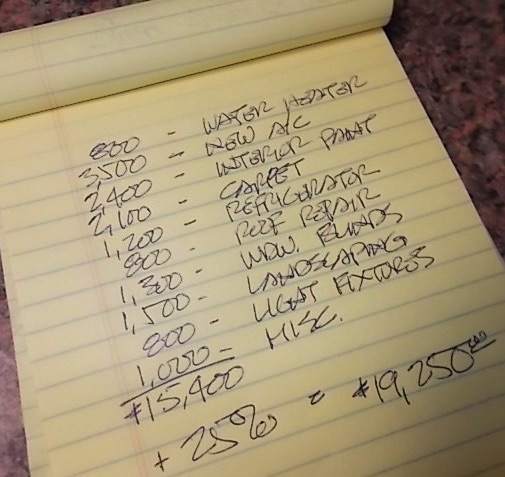 800 - WATER HEATER
3,500 - NEW A/C
2,400 - INTERIOR PAINT
2,100 - CARPET
1,200 - REFRIGERATOR
800 - ROOF REPAIR
1,300 - WDW. BLINDS
1,500 - LANDSCAPING
800 - LIGHT FIXTURES
1,000 - MISC.
$15,400
+ 25% = $19,250.00